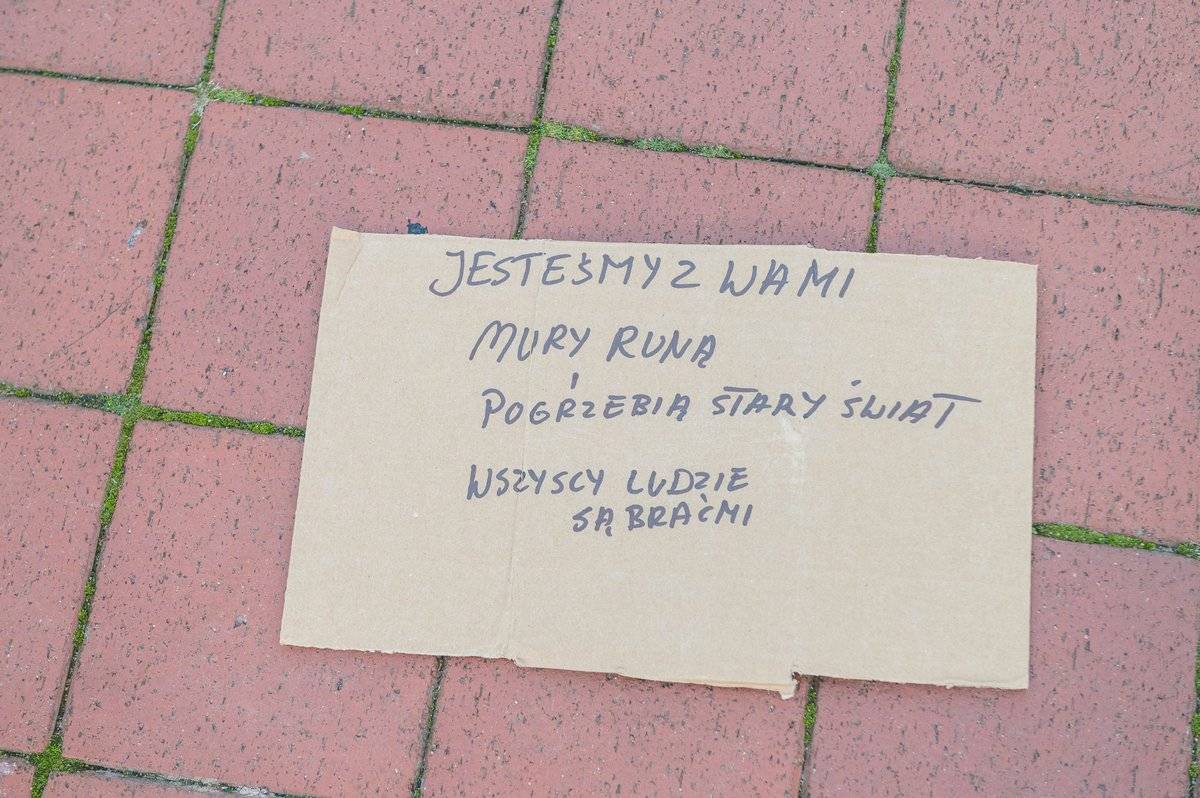 JESTEŚMY Z WAMI
MURY RUNĄ
I
POGRZEBIĄ STARY ŚWIAT
WSZYSCY LUDZIE
SĄ BRAĆMI